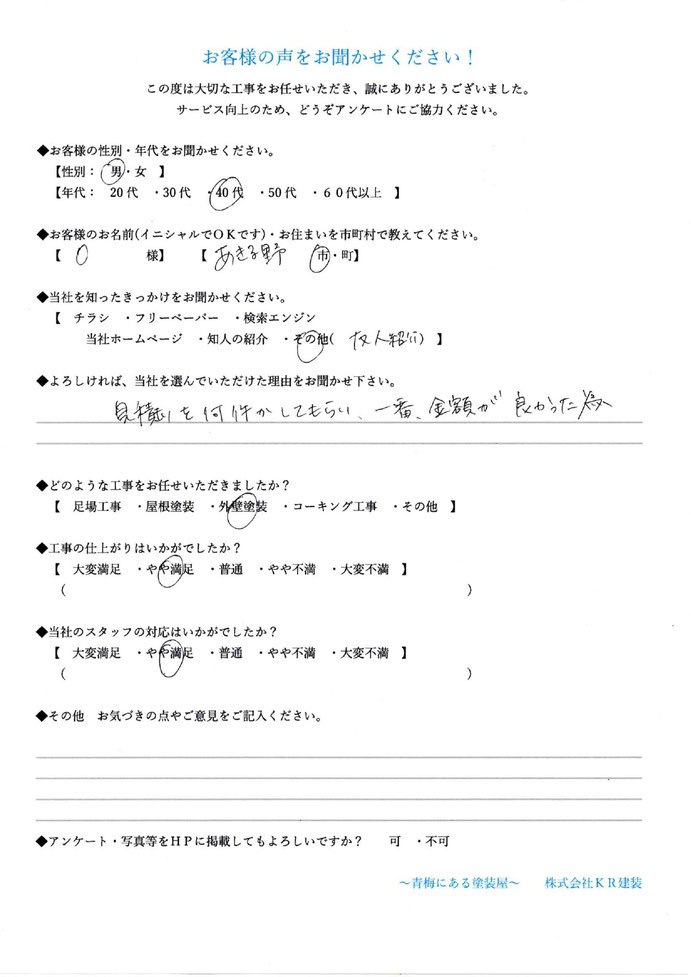 お客様の声をお聞かせください！
この度は大切な工事をお任せいただき、誠にありがとうございました。
サービス向上のため、どうぞアンケートにご協力ください。
◆お客様の性別・年代をお聞かせください。
【性別： 男・女 】
【年代： 20代 ・30代 ・40代 ・50代 ・６０代以上 】
◆お客様のお名前(イニシャルでＯＫです)・お住まいを市町村で教えてください。
【 O 様】 【 あきる野 市・町】
◆当社を知ったきっかけをお聞かせください。
【 チラシ ・フリーペーパー ・検索エンジン
当社ホームページ ・知人の紹介 ・その他( 友人紹介) 】
◆よろしければ、当社を選んでいただけた理由をお聞かせ下さい。
見積りを何件かしてもらい、一番、金額が良かった為
◆どのような工事をお任せいただきましたか？
【 足場工事 ・屋根塗装 ・外壁塗装 ・コーキング工事 ・その他 】
◆工事の仕上がりはいかがでしたか？
【 大変満足 ・やや満足 ・普通 ・やや不満 ・大変不満 】
( )
◆当社のスタッフの対応はいかがでしたか？
【 大変満足 ・やや満足 ・普通 ・やや不満 ・大変不満 】
( )
◆その他 お気づきの点やご意見をご記入ください。
◆アンケート・写真等をＨＰに掲載してもよろしいですか？ 可 ・不可
～青梅にある塗装屋～ 株式会社ＫＲ建装